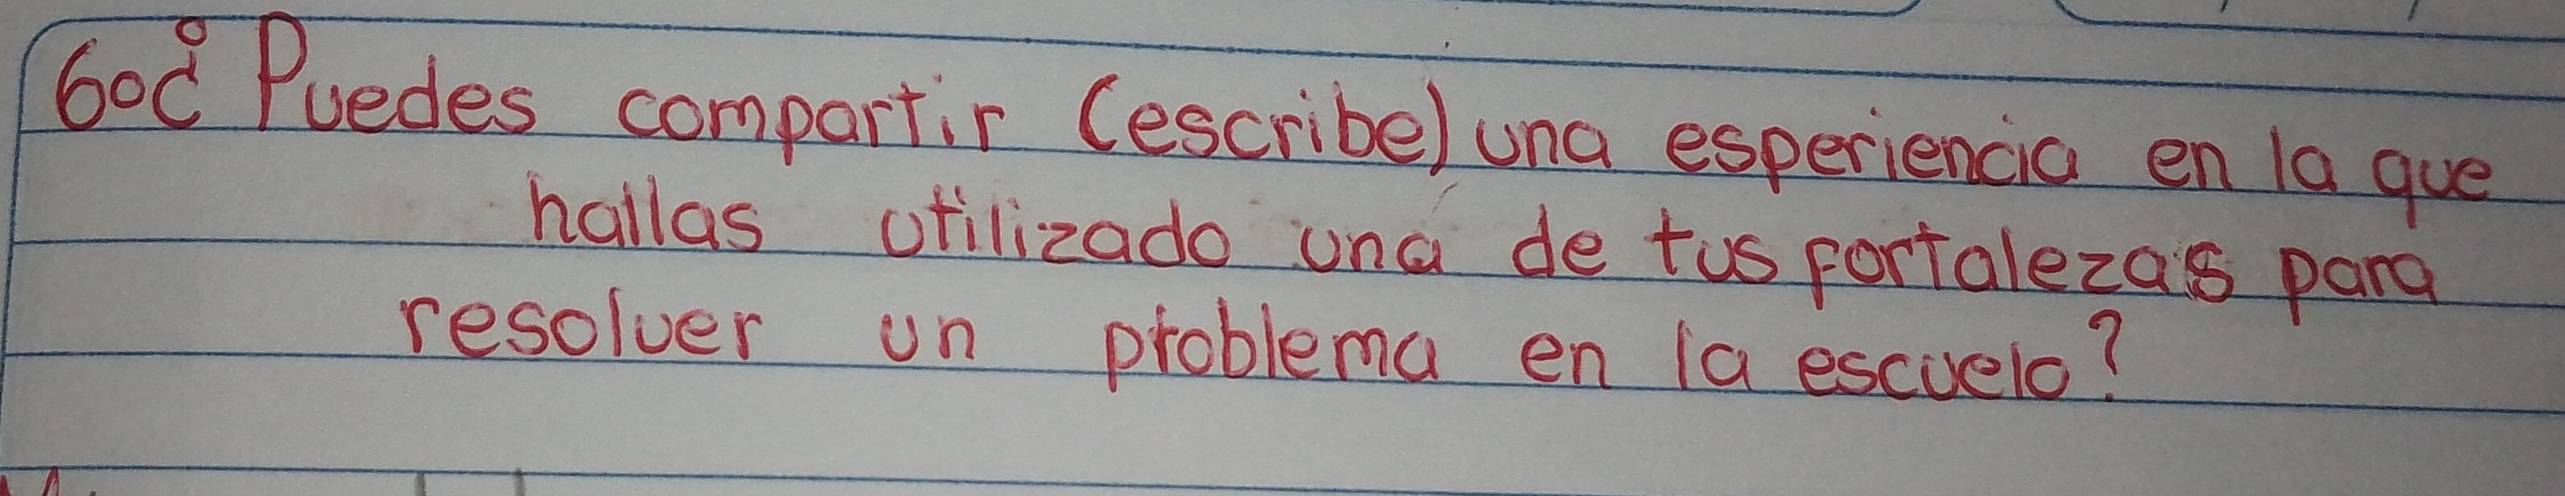 6o¿ Puedes compartir (escribe) una esperiencia en la que
hallas utilizado una de tus fortalezas para
resolver un problema en la escuela?